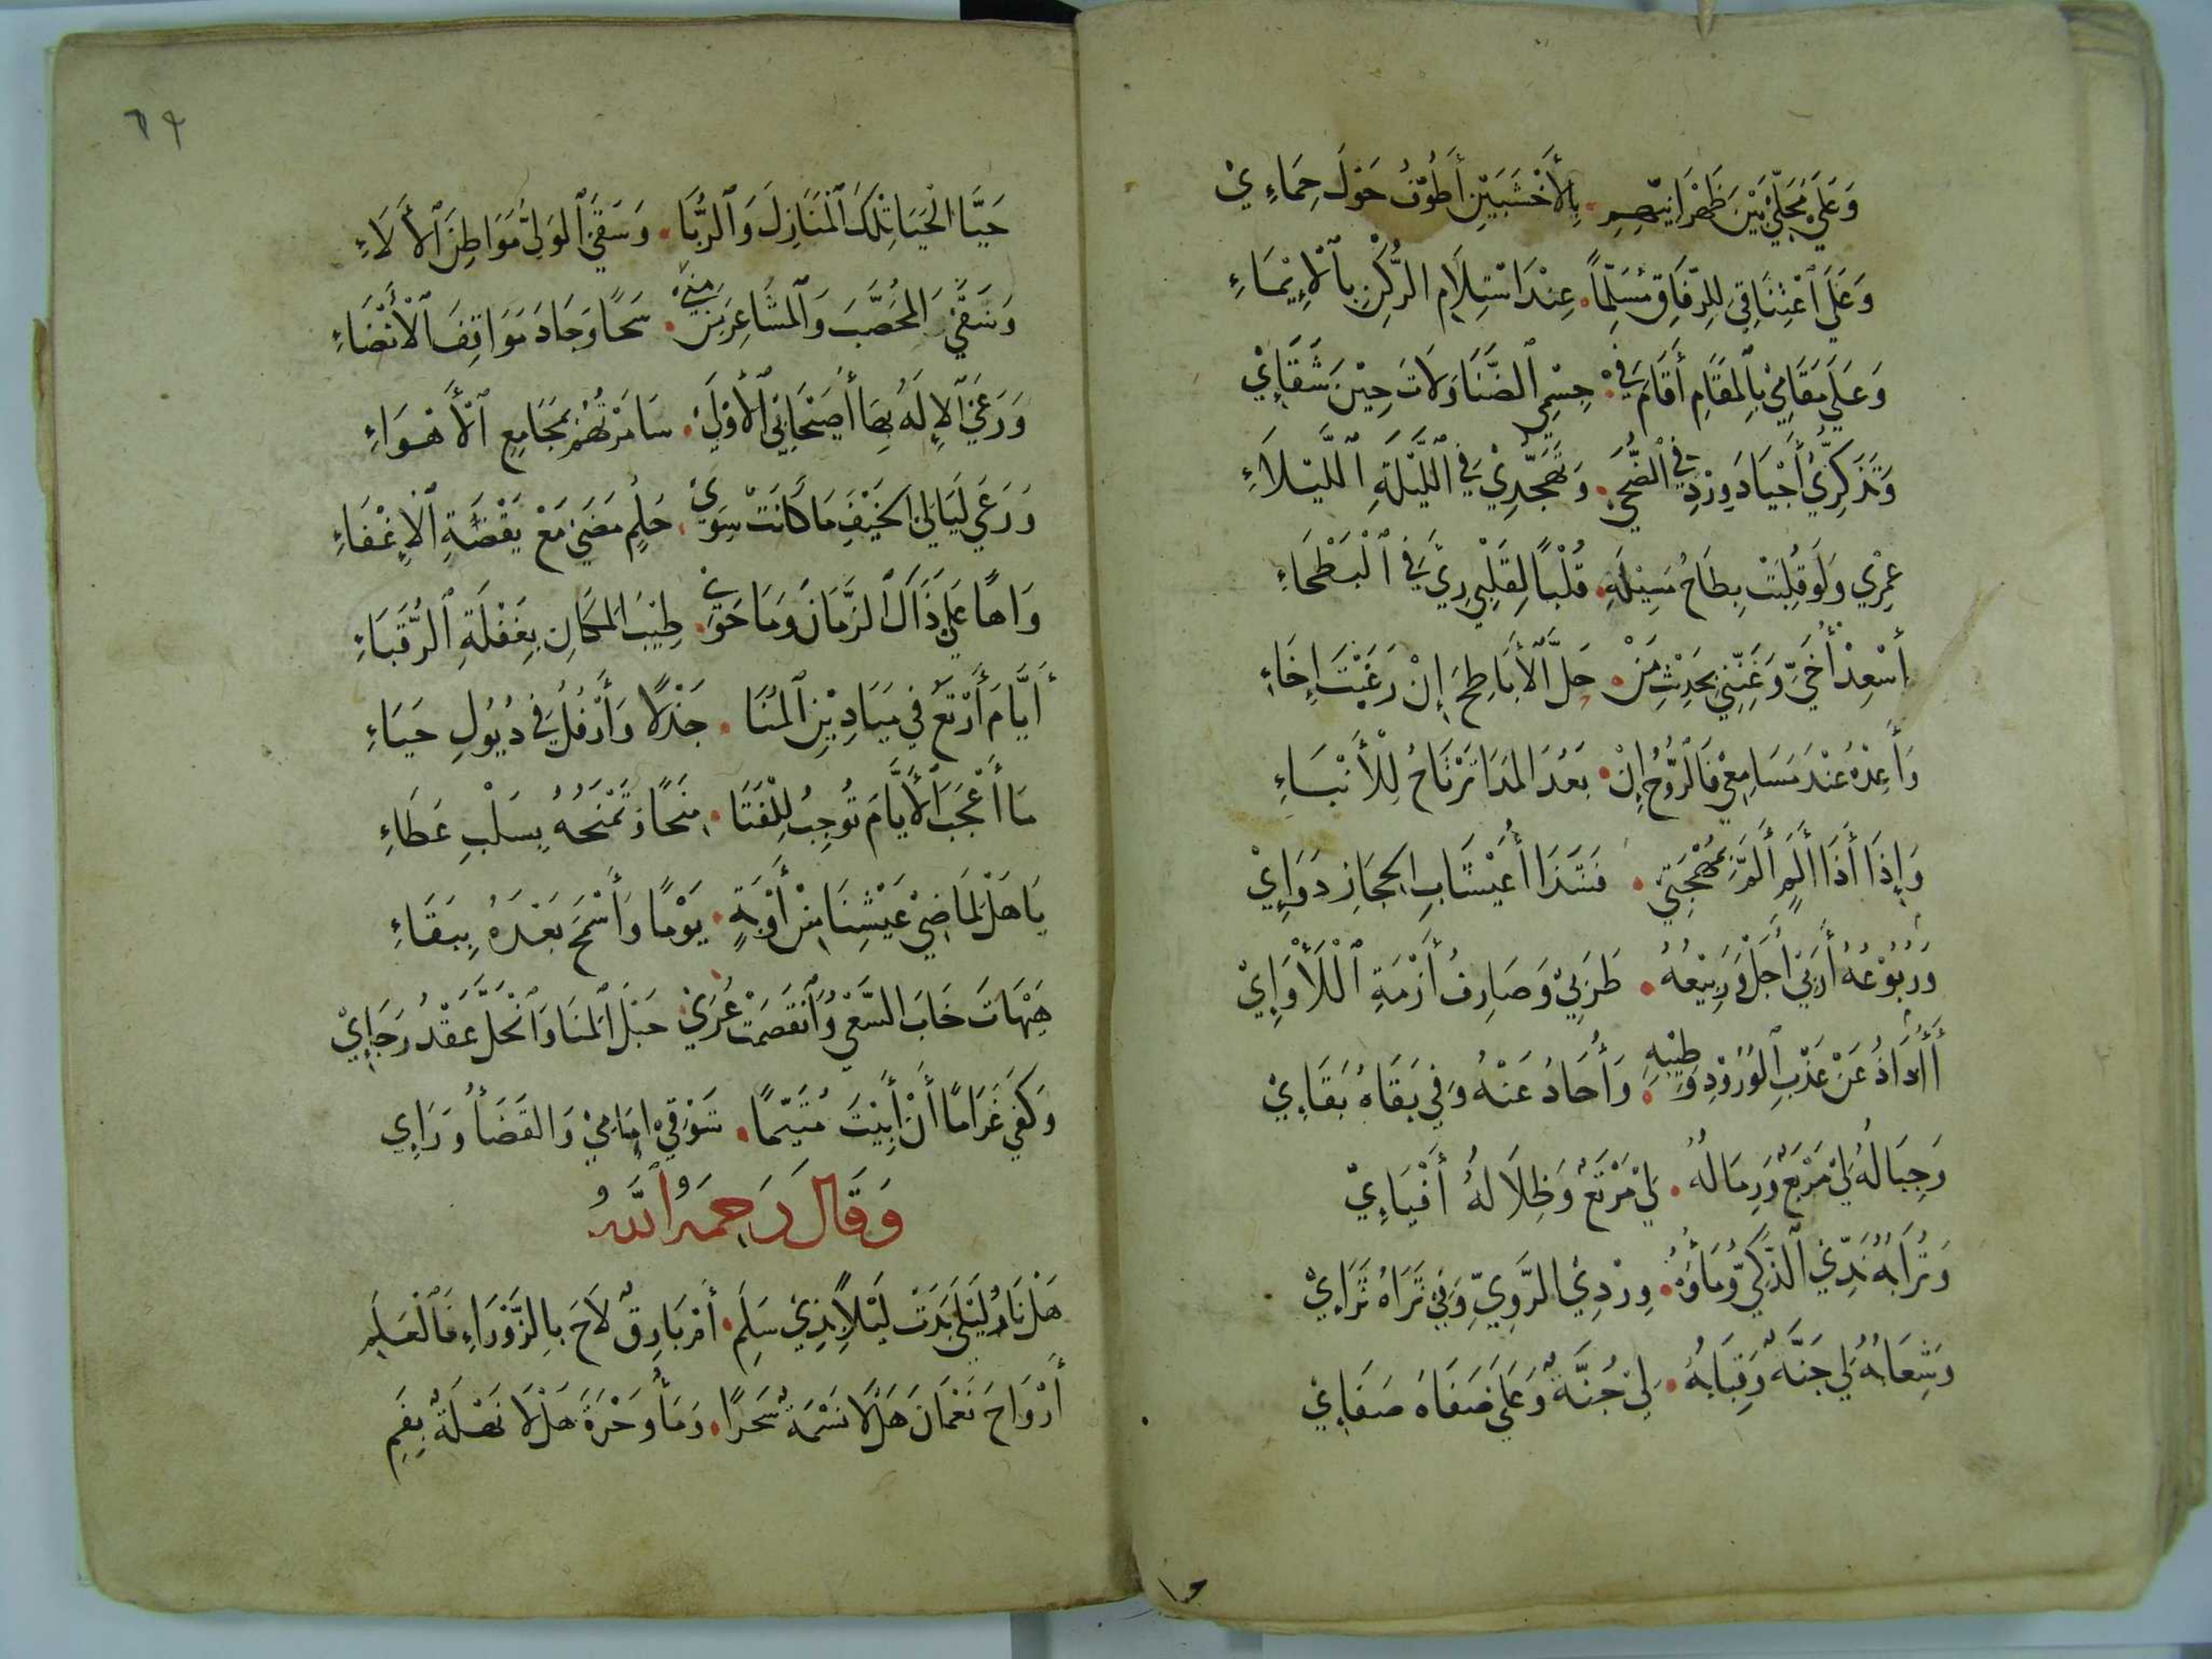 وَعَلَى مَحَلِّي بَيْنَ ظَهْرَانَيْهِمِ. بِالأَخْشَبَيْنِ أَطُوْفُ حَوْلَ حِمَاءِيْ
وَعَلَى ٱعْتِنَاقِي لِلرِّفَاقِ مُسَلِّمًا. عِنْدَ اسْتِلَامِ الرُّكْنِ بِٱلْإِيْمَاءِ
وَعَلَى مَقَامِيْ بِالمَقَامِ أَقَامَ فِيْ. جِسْمِي ٱلضَّنَا وَلَاتَ حِيْنَ شَقَائِيْ
وَتَذَكُّرِيْ أَجْيَادَ وِرْدِيْ فِي ٱلضُّحَى. وَتَهَجُّدِيْ فِي اللَّيْلَةِ ٱللَّيْلَاءِ
عِمْرِي وَلَوْ قُلِبَتْ بِطَاحُ مَسِيْلِهِ. قُلُبًا لِقَلْبِي رِيَّ فِي ٱلْبَطْحَاءِ
أَسْعِدْ أُخَيَّ وَغَنِّنِي بِحَدِيْثِ مَنْ. حَلَّ ٱلْأَبَاطِحَ إِنْ رَعَيْتَ إِخَاءِ
وَأَعِدْهُ عِنْدَ مَسَامِعِيْ فَالرُّوْحُ إِنْ. بَعُدَ المَدَا تَرْتَاحُ لِلْأَنْبَاءِ
وَإِذَا أَذَا أَلَمٍ أَلَمَّ بِمُهْجَتِيْ. فَشَذَا أُعَيْشَابِ الحِجَازِ دَوَائِيْ
وَرُبُوْعُهُ أَرَبِيْ أَجَلْ وَرَبِيْعُهُ. طَرَبِيْ وَصَارِفُ أَزْمَةِ ٱللَّأْوَائِيْ
أَأُذَاذُ عَنْ عَذْبِ ٱلْوُرُوْدِ وَطِيْبِهِ. وَأُحَادُ عَنْهُ وَفِي بَقَاهُ بَقَائِيْ
وَجِبَالُهُ لِيْ مَرْبَعٌ وَرِمَالُهُ. لِيْ مَرْتَعٌ وَظِلَالُهُ أَفْيَائِيْ
وَتُرَابُهُ نَدِّيْ ٱلذَّكِيُّ وَمَاؤُهُ. وِرْدِيْ الرَّوِيُّ وَفِيْ ثَرَاهُ ثَرَائِيْ
وَشِعَابُهُ لِيْ جَنَّةٌ وَقِبَابُهُ. لِيْ جُنَّةٌ وَعَلَى صَفَاهُ صَفَائِيْ
٦٩
حَيَّا الْحَيَا تِلْكَ ٱلْمَنَازِلَ وَٱلرُّبَا. وَسَقَى ٱلْوَلِيُّ مَوَاطِنَ ٱلْأَلَاءِ
وَسَقَى المُحَصَّبَ وَٱلْمَشَاعِرَ مِنْ مِنًى. سَحًّا وَجَادَ مَوَاقِفَ ٱلْأَنْضَاءِ
وَرَعَى ٱلْإِلَهُ بِهَا أُصَيْحَابِيْ ٱلْأُوْلَىْ. سَامَرْتُهُمْ بِمَجَامِعِ ٱلْأَهْوَاءِ
وَرَعَى لَيَالِيْ الخَيْفِ مَا كَانَتْ سِوَىْ. حُلُمٍ مَضَى مَعْ يَقْضَةِ ٱلْإِغْفَاءِ
وَاهًا عَلَى ذَاكَ الزَّمَانِ وَمَا حَوَىْ. طِيْبَ المَكَانِ بِغَفْلَةِ ٱلرُّقَبَاءِ
أَيَّامَ أَرْتَعُ فِي مَيَادِيْنِ ٱلْمُنَا. جَذْلًا وَأَرْفُلُ فِي ذُيُوْلِ حَيَاءِ
مَا أَعْجَبَ ٱلْأَيَّامَ تُوْجِبُ لِلْفَتَا. مِنَحًا وَتَمْنَحُهُ بِسَلْبِ عَطَاءِ
يَا هَلْ لِمَاضِيْ عَيْشِنَا مِنْ أَوْبَةٍ. يَوْمًا وَأَسْمَحَ بَعْدَهُ بِبَقَاءِ
هَيْهَاتَ خَابَ السَّعْيُ وَٱنْقَصَمَتْ عُرَىْ حَبْلِ ٱلْمُنَا وَٱنْحَلَّ عَقْدُ رَجَائِيْ
وَكَفَى غَرَامًا أَنْ أَبِيْتَ مُتَيَّمًا. شَوْقِيْ أَمَامِيْ وَالقَضَاءُ وَرَاىِٔي
وَقَالَ رَحِمَهُ ٱللَّهُ
هَلْ نَارُ لَيْلَى بَدَتْ لَيْلًا بِذِيْ سَلَمِ. أَمْ بَارِقٌ لَاحَ بِالزَّوْرَاءِ فَٱلْعَلَمِ
أَرْوَاحَ نَعْمَانَ هَلَّا نَسْمَةٌ سَحَرًا. وَمَاءُ وَجْرَةَ هَلَّا نَهْلَةٌ بِفَمِ